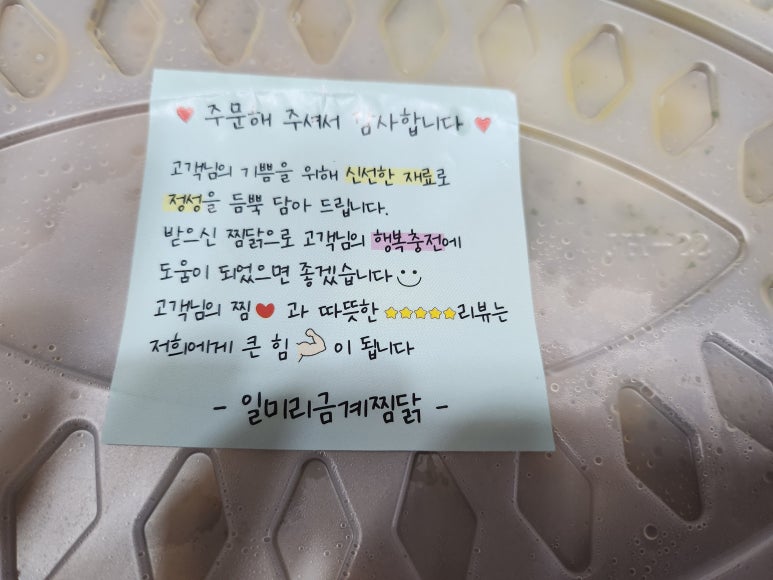 ♥ 주문해 주셔서 감사합니다 ♥
고객님의 기쁨을 위해 신선한 재료로
정성을 듬뿍 담아 드립니다.
받으신 찜닭으로 고객님의 행복충전에
도움이 되었으면 좋겠습니다
고객님의 찜♥ 과 따뜻한 ★★★★★리뷰는
저희에게 큰 힘 이 됩니다
- 일미리금계찜닭 -